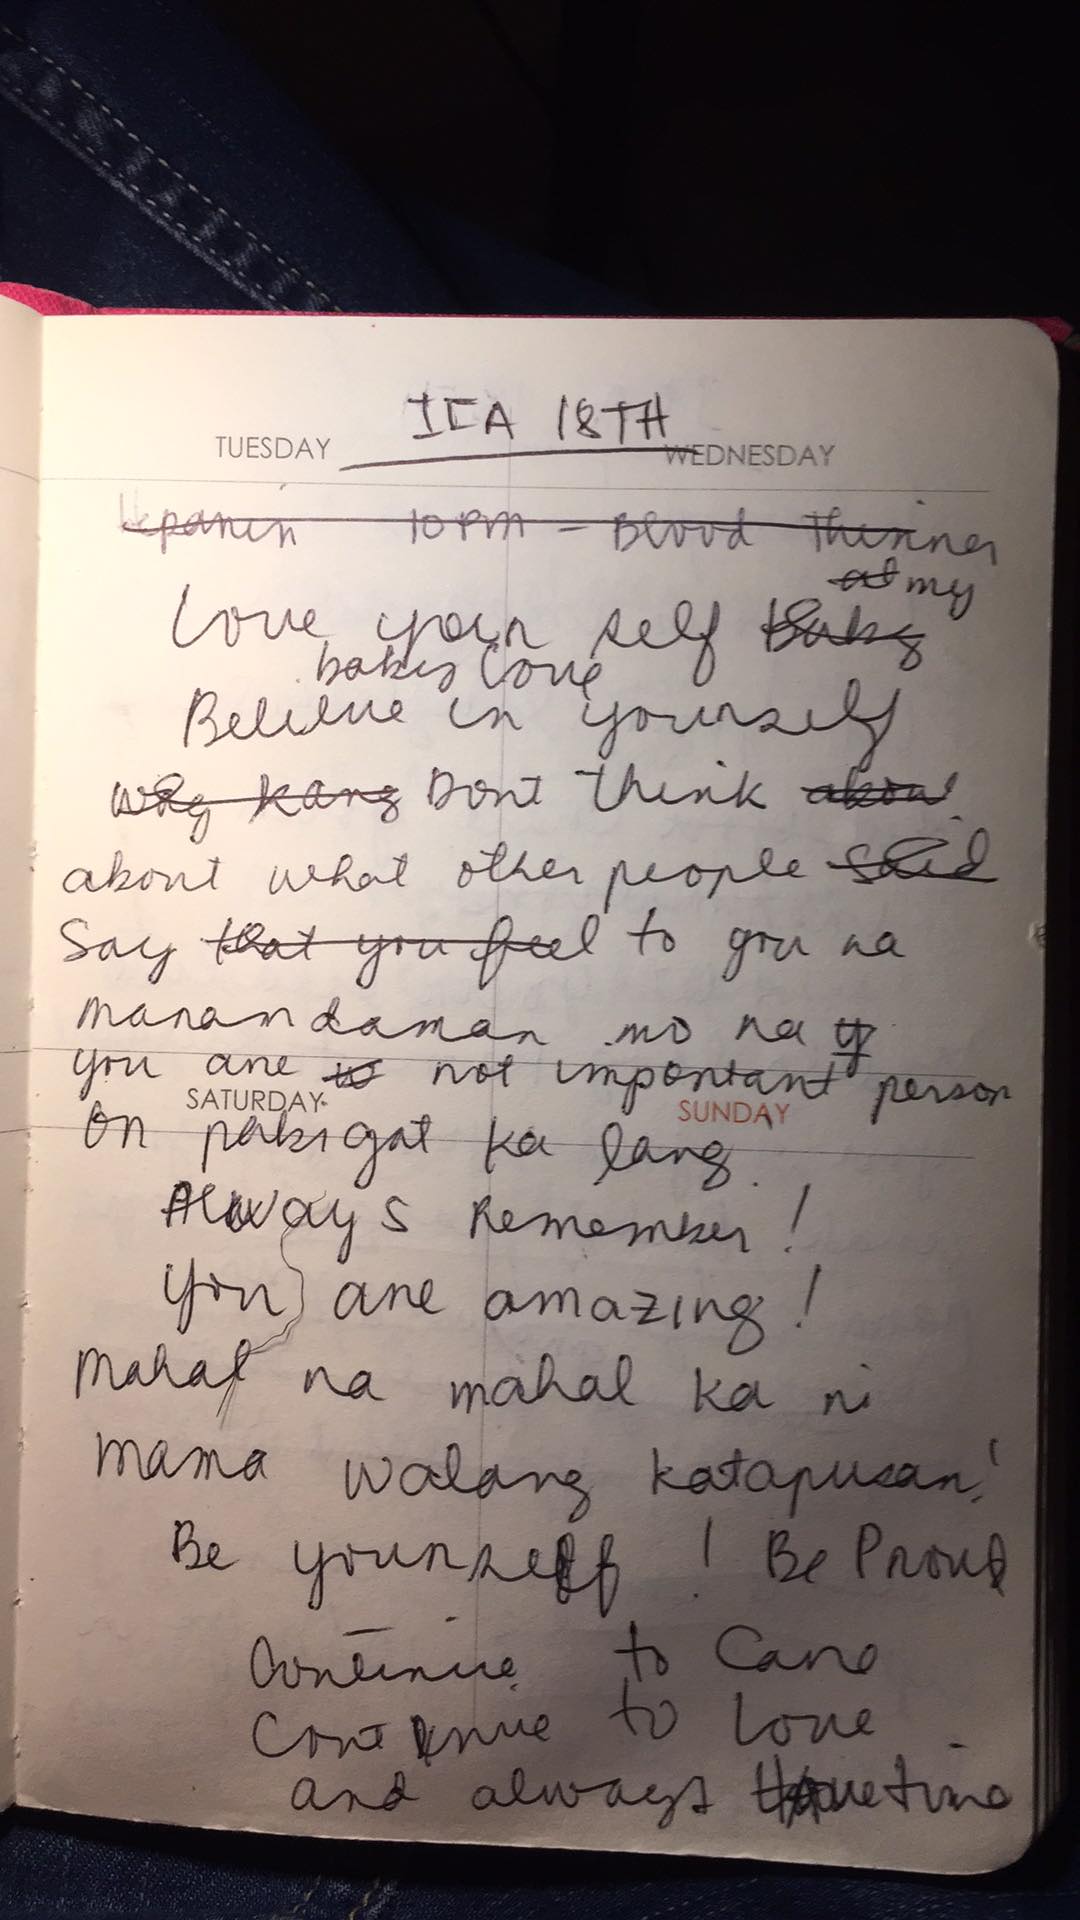 ICA 18TH
TUESDAY WEDNESDAY
Hepanin 10PM - Blood Thinner
at my
Love your self Baby
babys love
Believe in yourself
wag kang Dont think about
about what other people said
Say that you feel to you na
manamdaman mo na y
you are is not important person
SATURDAY SUNDAY
On pabigat ka lang.
Always Remember!
You are amazing!
Mahal na mahal ka ni
mama walang katapusan!
Be yourself! Be Proud
Continue to Care
Continue to Love
and always Have time